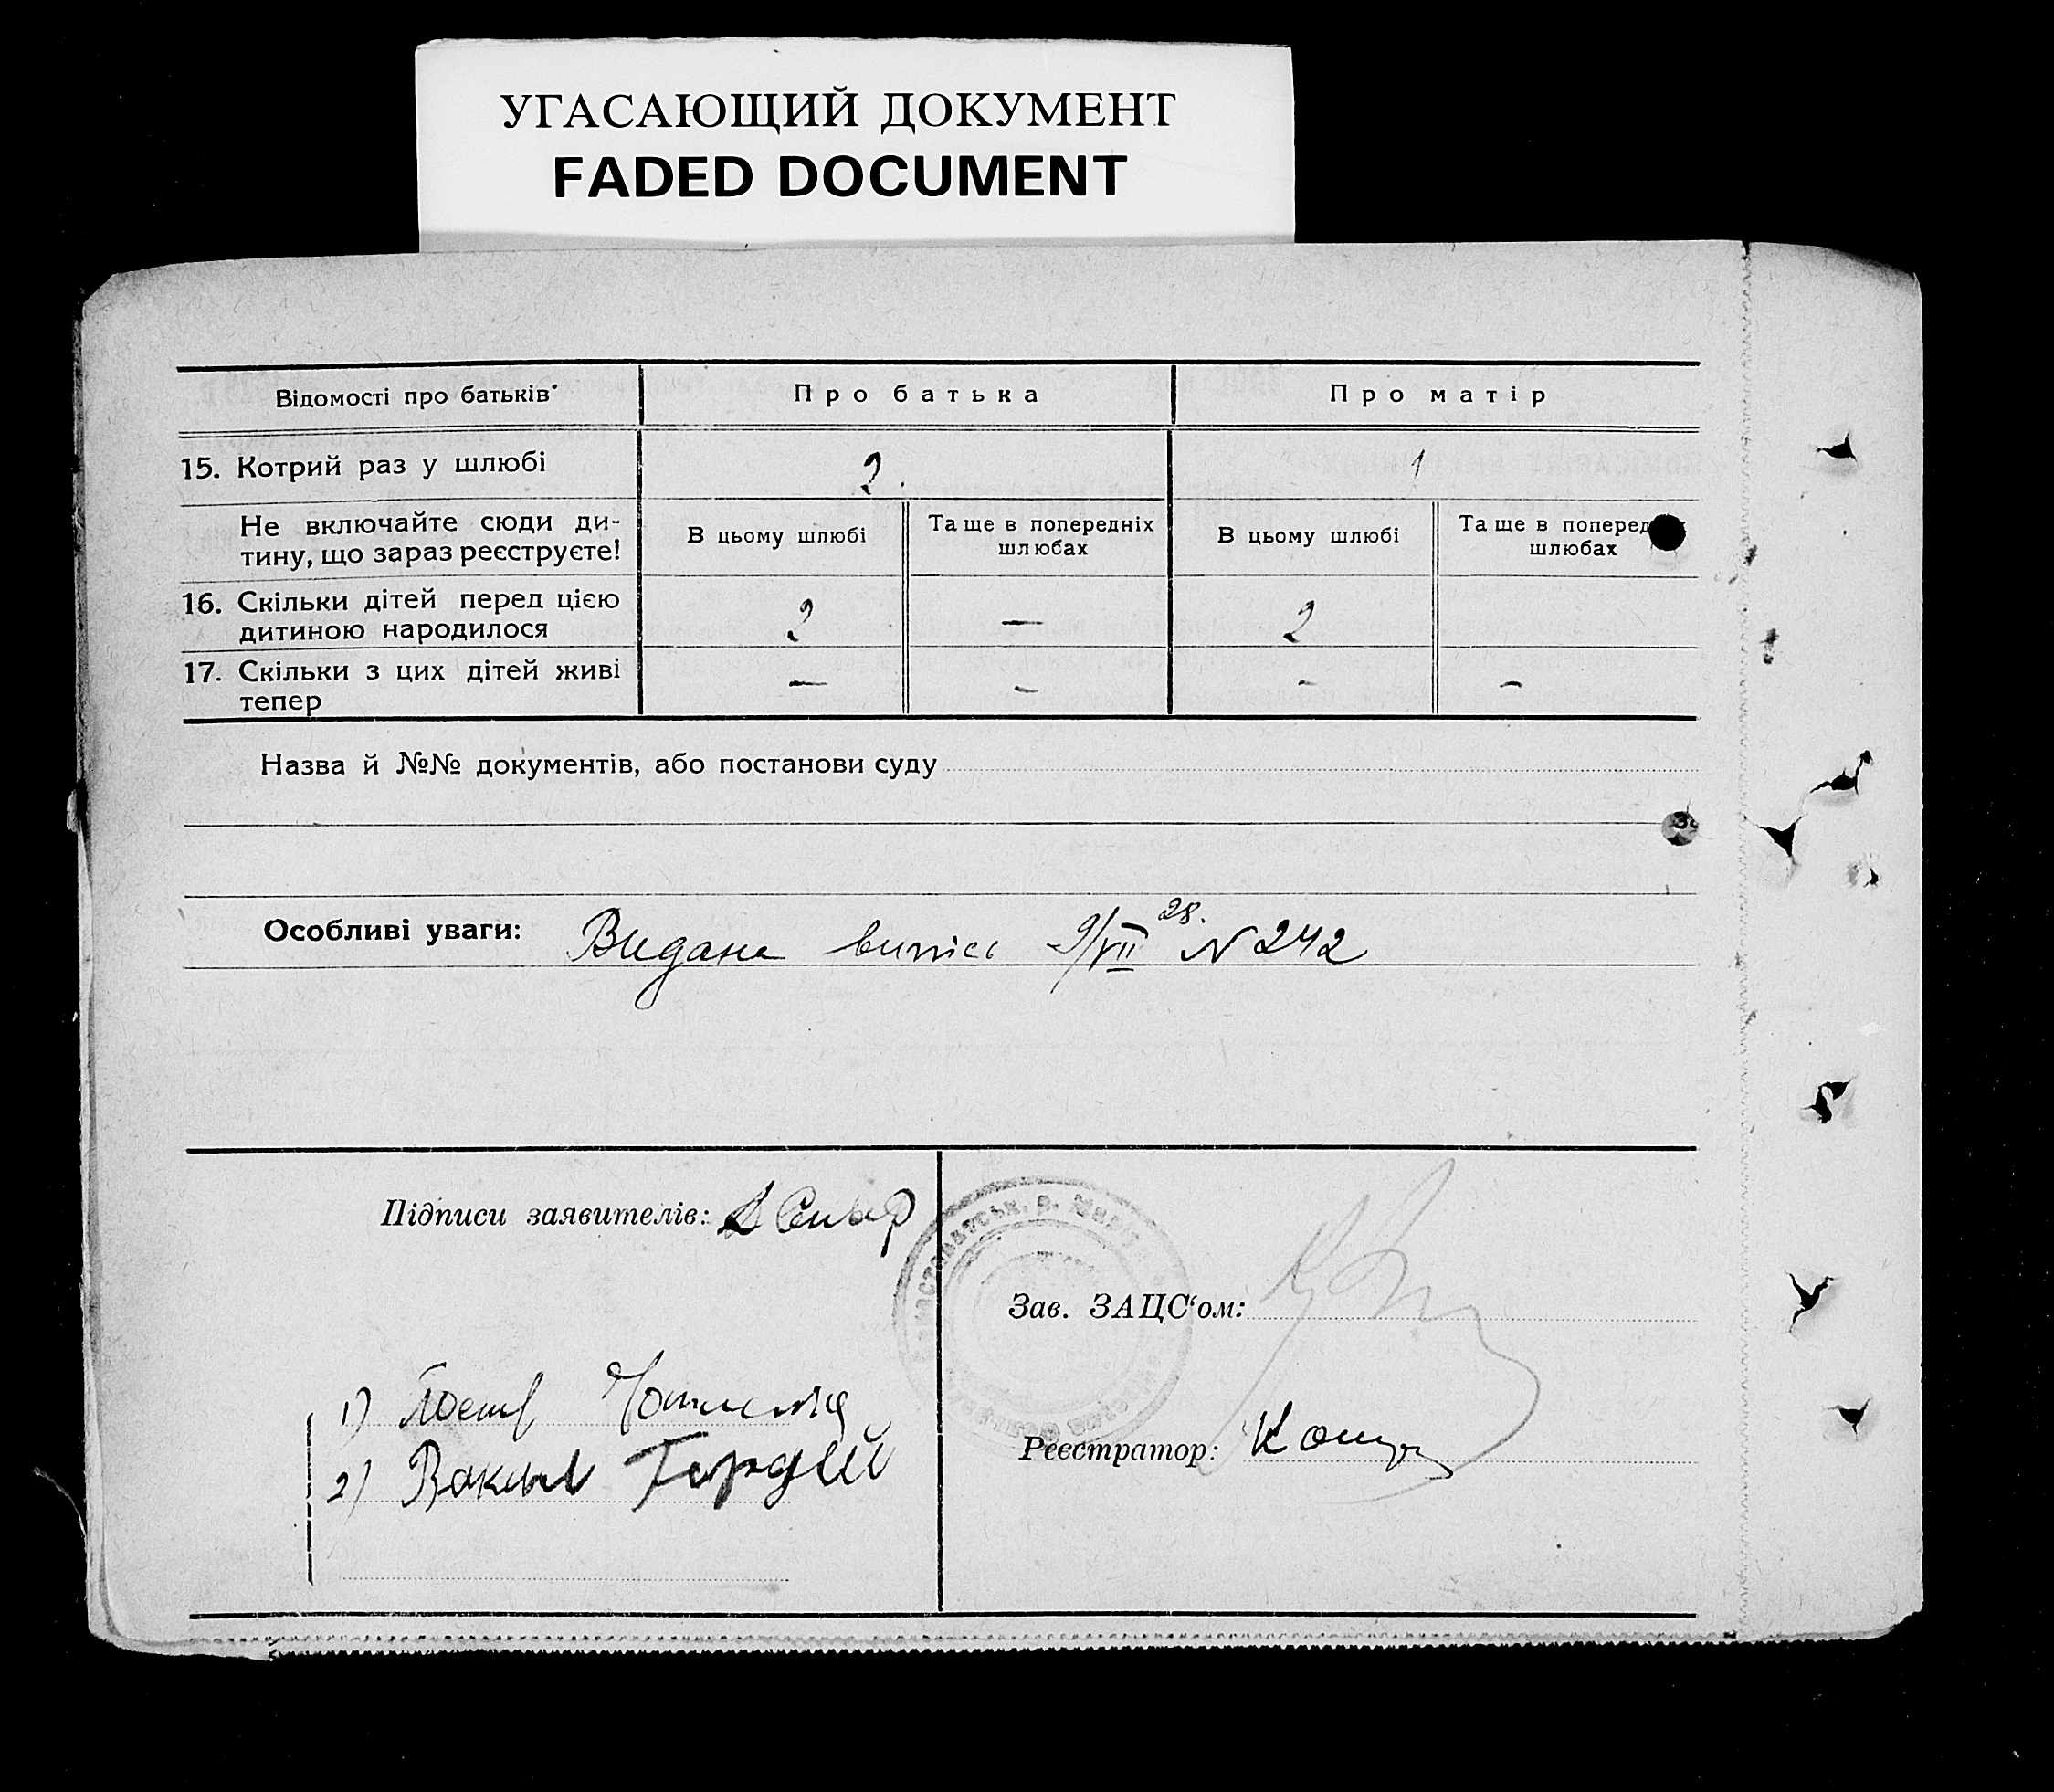 УГАСАЮЩИЙ ДОКУМЕНТ
FADED DOCUMENT
Відомості про батьків Про батька Про матір
15. Котрий раз у шлюбі 2. 1
Не включайте сюди ди-
тину, що зараз реєструєте!
В цьому шлюбі
Та ще в попередніх
шлюбах
В цьому шлюбі
Та ще в поперед
шлюбах
16. Скільки дітей перед цією
дитиною народилося
2 — 2
17. Скільки з цих дітей живі
тепер
— - - -
Назва й №№ документів, або постанови суду
Особливі уваги: Видана випись 9/VII 28. N 242
Підписи заявителів:
Зав. ЗАЦС‘ом:
1)
2) Гордій
Реєстратор: